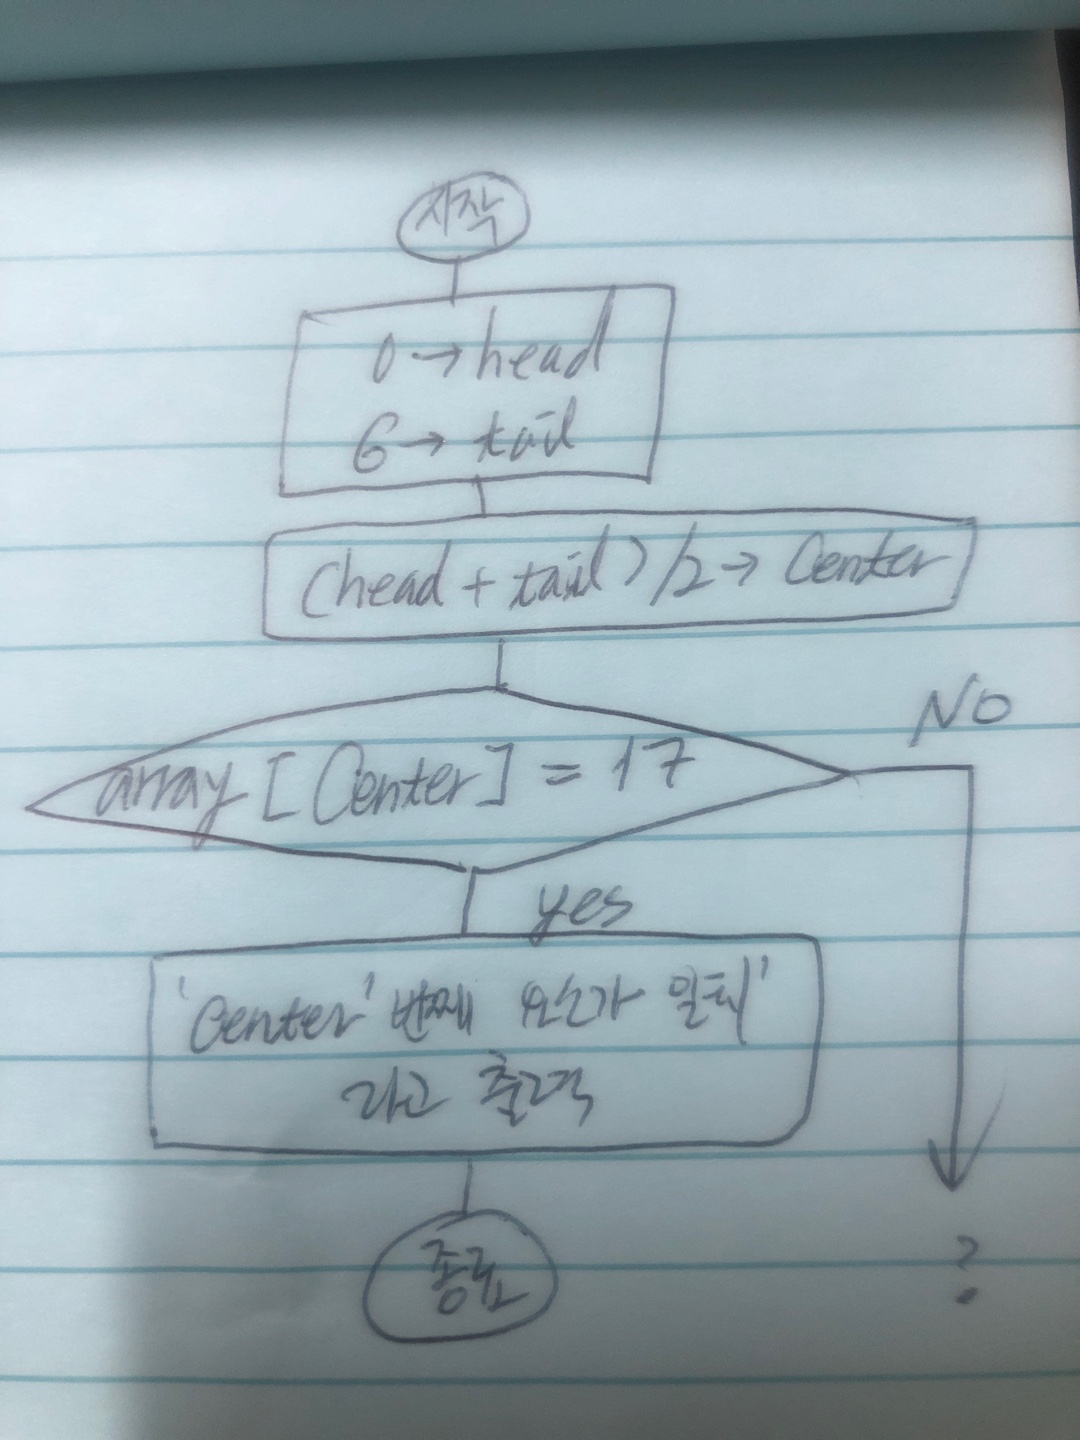 시작
0→head
6→tail
(head + tail)/2→ Center
NO
array [Center] = 17
yes
'Center' 번째 요소가 일치'
라고 출력
종료
?